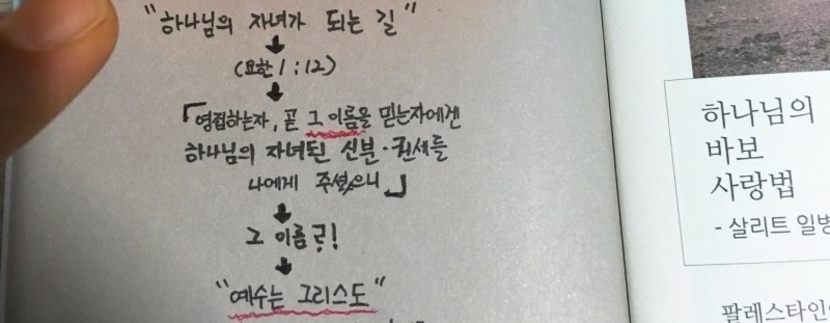 "하나님의 자녀가 되는 길"
(요한 1:12)
「영접하는자, 곧 그 이름을 믿는자에겐
하나님의 자녀된 신분·권세를
나에게 주셨으니」
그 이름은!
"예수는 그리스도"
하나님의
바보
사랑법
- 살리트 일병
팔레스타인